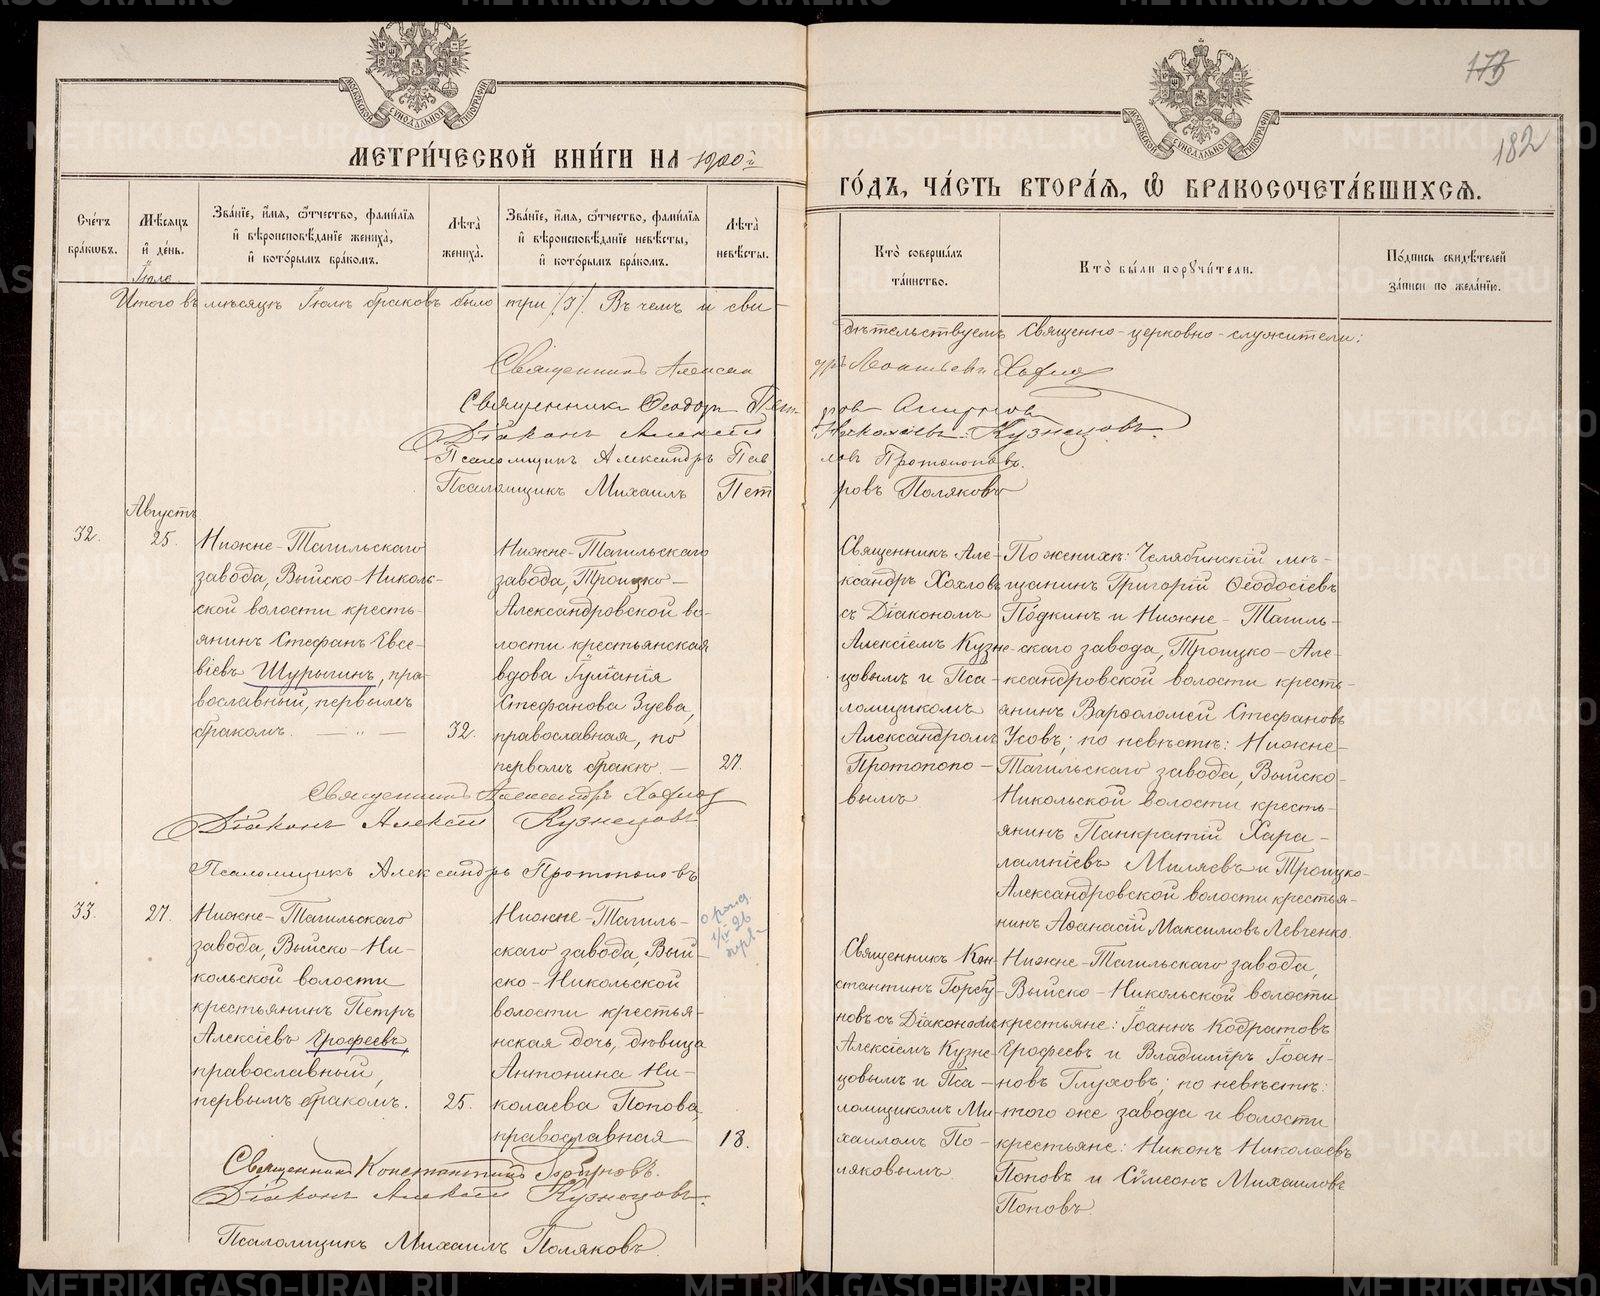 МЕТРИ́ЧЕСКОЙ КНИ́ГИ НА 1900й
ГО́ДЪ, ЧА́СТЬ ВТОРА́Я, Ѡ БРАКОСОЧЕТА́ВШИХСЯ.
173
182
МОСКОВСКОЙ СѴНОДАЛЬНОЙ ТИПОГРАФІИ
МОСКОВСКОЙ СѴНОДАЛЬНОЙ ТИПОГРАФІИ
Сче́тъ бра́кѡвъ.
Мѣ́сяцъ и҆ де́нь.
Зва́нїе, и҆́мя, ѻ҆́тчество, фами́лїя и҆ вѣроисповѣ́данїе жениха̀, и҆ кото́рымъ бра́комъ.
Лѣ́та̀ жениха̀.
Зва́нїе, и҆́мя, ѻ҆́тчество, фами́лїя и҆ вѣроисповѣ́данїе невѣ́сты, и҆ кото́рымъ бра́комъ.
Лѣ́та̀ невѣ́сты.
Кто̀ соверша́лъ та́инство.
Кто̀ бы́ли порꙋчи́тели.
По́дпись свидѣ́телей за́писи по жела́нїю.
Іюле
Итого въ мѣсяцѣ Іюлѣ браковъ было три /3/. Въ чемъ и сви-
дѣтельствуемъ Священно-церковно-служители:
Священникъ Алексан
дръ Леонтьевъ Хохлов
Священникъ Ѳеодоръ Пет
ровъ Смирнов
Діаконъ Алексій
Николаевъ Кузнецовъ.
Псаломщикъ Александръ Пав
ловъ Протопоповъ.
Псаломщикъ Михаилъ Пет
ровъ Поляковъ
Августъ
32.
25.
Нижне-Тагильскаго
завода, Выйско-Николь-
ской волости кресть-
янинъ Стефанъ Евсе-
віевъ Шурыгинъ, пра-
вославный, первымъ
бракомъ. — „ —
32.
Нижне-Тагильскаго
завода, Троицко-
Александровской во-
лости крестьянская
вдова Іуліанія
Стефанова Зуева,
православная, по
первомъ бракѣ. —
27.
Священникъ Але-
ксандръ Хохловъ
съ Діакономъ
Алексіемъ Кузне-
цовымъ и Пса-
ломщикомъ
Александромъ
Протопопо-
вымъ
По женихѣ: Челябинскій мѣ-
щанинъ Григорій Ѳеодосіевъ
Подкинъ и Нижне-Тагиль-
скаго завода, Троицко-Але-
ксандровской волости кресть-
янинъ Варѳоломей Стефановъ
Усовъ; по невѣстѣ: Нижне-
Тагильскаго завода, Выйско-
Никольской волости кресть-
янинъ Панкратій Хара-
лампіевъ Миляевъ и Троицко-
Александровской волости крестья-
нинъ Аѳанасій Максимовъ Левченко.
Священникъ Александръ Хохлов
Діаконъ Алексій Кузнецовъ
Псаломщикъ Александръ Протопоповъ
33.
27.
Нижне-Тагильскаго
завода, Выйско-Ни-
кольской волости
крестьянинъ Петръ
Алексіевъ Ерофеевъ,
православный,
первымъ бракомъ.
25.
Нижне-Тагиль-
скаго завода, Вый-
ско-Никольской
волости крестья-
нская дочь, дѣвица
Антонина Ни-
колаева Попова,
православная
18.
Священникъ Кон-
стантинъ Горбу-
новъ съ Діакономъ
Алексіемъ Кузне-
цовымъ и Пса-
ломщикомъ Ми-
хаиломъ По-
ляковымъ
Нижне-Тагильскаго завода,
Выйско-Никольской волости
крестьяне: Іоаннъ Кодратовъ
Ерофеевъ и Владиміръ Іоан-
новъ Глуховъ; по невѣстѣ:
того же завода и волости
крестьяне: Никонъ Николаевъ
Поповъ и Сѵмеонъ Михаиловъ
Поповъ
Священникъ Константинъ Горбуновъ.
Діаконъ Алексій Кузнецовъ.
Псаломщикъ Михаилъ Поляковъ.
METRIKI.GASO-URAL.RU